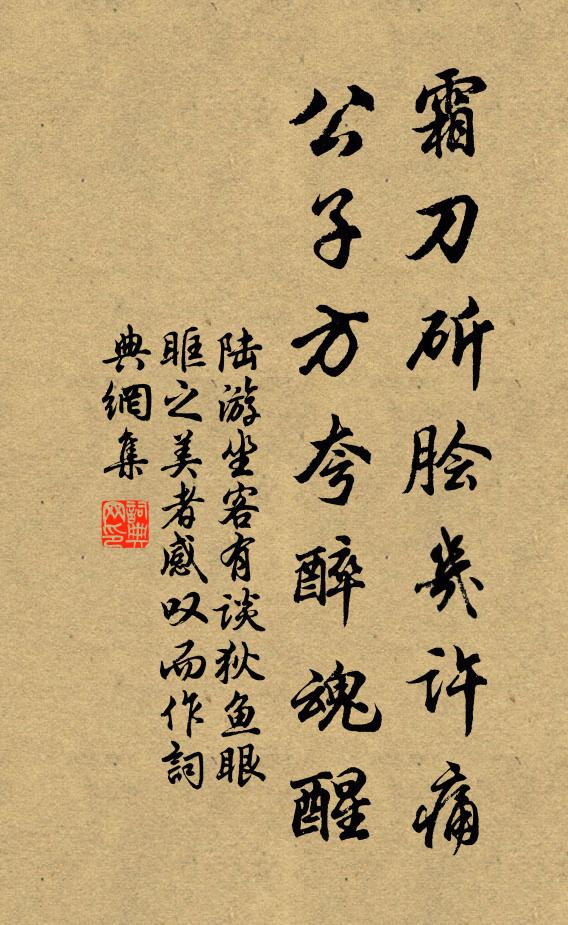 霜刀斫脍幾许痛
公子方夸醉魂醒
陆游坐客有谈狄鱼眼
眶之美者感叹而作詞
典網集
詞典
网印